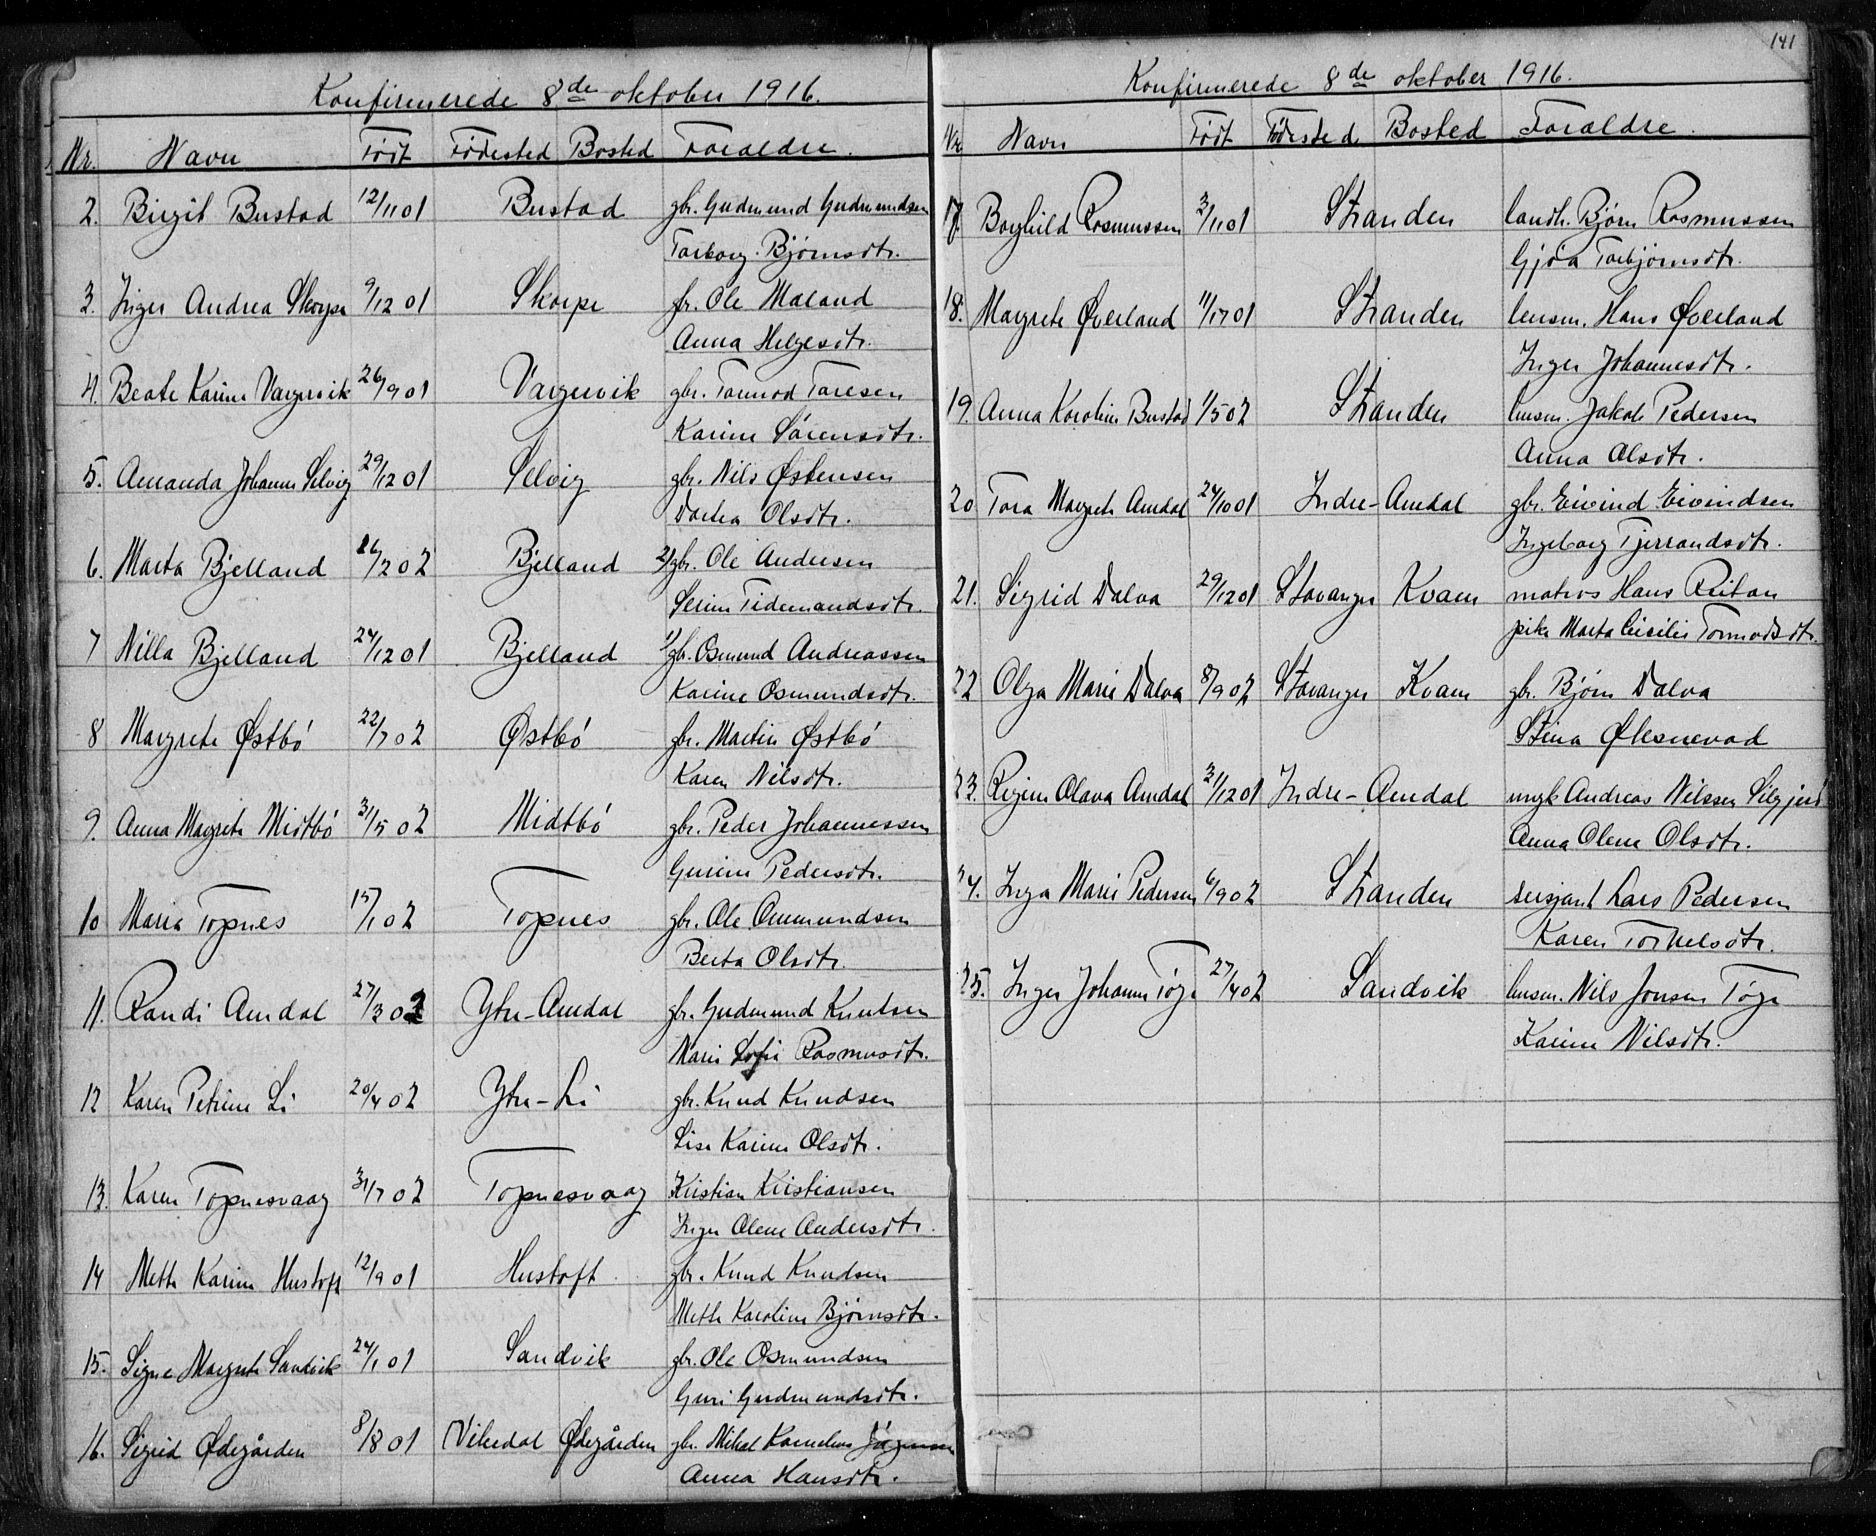 Konfirmerede 8de oktober 1916.
Nr. Navn Født Fødested Bosted Foraldre.
2. Birgit Bustad 12/11 01 Bustad gbr. Gudmund Gudmundsen
Torborg Bjørnsdtr.
3. Inger Andrea Skorpe 9/12 01 Skorpe gbr. Ole Maland
Anna Helgesdtr.
4. Beate Karine Vargervik 26/9 01 Vargervik gbr. Tormod Toresen
Karine Sørensdtr.
5. Amanda Johanne Selvig 29/12 01 Selvig gbr. Nils Østensen
Dortea Olsdtr.
6. Marta Bjelland 26/2 02 Bjelland gbr. Ole Andersen
Serine Tidemandsdtr.
7 Nilla Bjelland 24/12 01 Bjelland gbr. Osmund Andreassen
Karine Osmundsdtr.
8 Margrete Østbó 22/7 02 Østbó gbr. Martin Østbó
Karen Nilsdtr.
9. Anna Margrete Midtbó 3/5 02 Midtbó gbr. Peder Johannessen
Gurine Pedersdtr.
10 Maria Topnes 15/1 02 Topnes gbr. Ole Ommundsen
Berta Olsdtr.
11. Randi Amdal 27/3 02 Ytre-Amdal gbr. Gudmund Knutsen
Marie Sofie Rasmusdtr.
12 Karen Petrine Li 20/4 02 Ytre-Li gbr. Knud Knudsen
Lise Karine Olsdtr.
13. Karen Topnesvaag 31/7 02 Topnesvaag Kristian Kristiansen
Inger Olene Andersdtr.
14 Mette Karine Hustoft 12/9 01 Hustoft gbr. Knud Knudsen
Mette Karoline Bjørnsdtr.
15. Signe Margrete Sandvik 24/1 01 Sandvik gbr. Ole Osmundsen
Guri Gudmundsdtr.
16. Sigrid Ødegården 8/8 01 Vikedal Ødegården gbr. Mikal Kornelius Jørgensen
Anna Hansdtr.
141
Konfirmerede 8de oktober 1916.
Nr. Navn Født Fødested Bosted Foraldre.
17. Borghild Rasmussen 3/11 01 Stranden landh. Bjørn Rasmussen
Gjøa Torbjørnsdtr.
18. Margrete Øverland 11/17 01 Stranden lensm. Hans Øverland
Inger Johannesdtr.
19. Anna Karoline Bustad 1/5 02 Stranden husm. Jakob Pedersen
Anna Olsdtr.
20 Tora Margrete Amdal 24/10 01 Indre-Amdal gbr. Eivind Eivindsen
Ingeborg Tjerrandsdtr.
21. Sigrid Dalva 29/12 01 Stavanger Kvam matros Hans Reitan
pike Marta Cecilie Tormodsdtr.
22 Olga Marie Dalva 8/9 02 Stavanger Kvam gbr. Bjørn Dalva
Stina Ølesnevad
23. Regine Olava Amdal 3/12 01 Indre-Amdal ungk Andreas Nilssen
Anna Olene Olsdtr.
24. Inga Marie Pedersen 6/9 02 Stranden sersjant Lars Pedersen
Karen Torkelsdtr.
25. Inger Johanne Tøge 27/4 02 Sandvik husm. Nils Jonsen Tøge
Karine Nilsdtr.